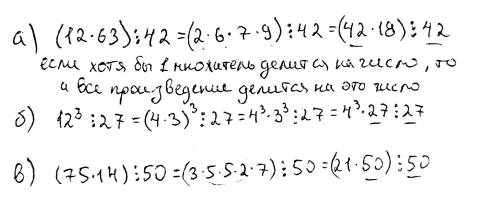 а) (12·63)⋮42=(2·6·7·9)⋮42=(42·18)⋮42
если хотя бы 1 множатель делится на число, то
и все произведение делится на это число
б) 12³⋮27=(4·3)³⋮27=4³·3³⋮27=4³·27⋮27
в) (75·14)⋮50=(3·5·5·2·7)⋮50=(21·50)⋮50